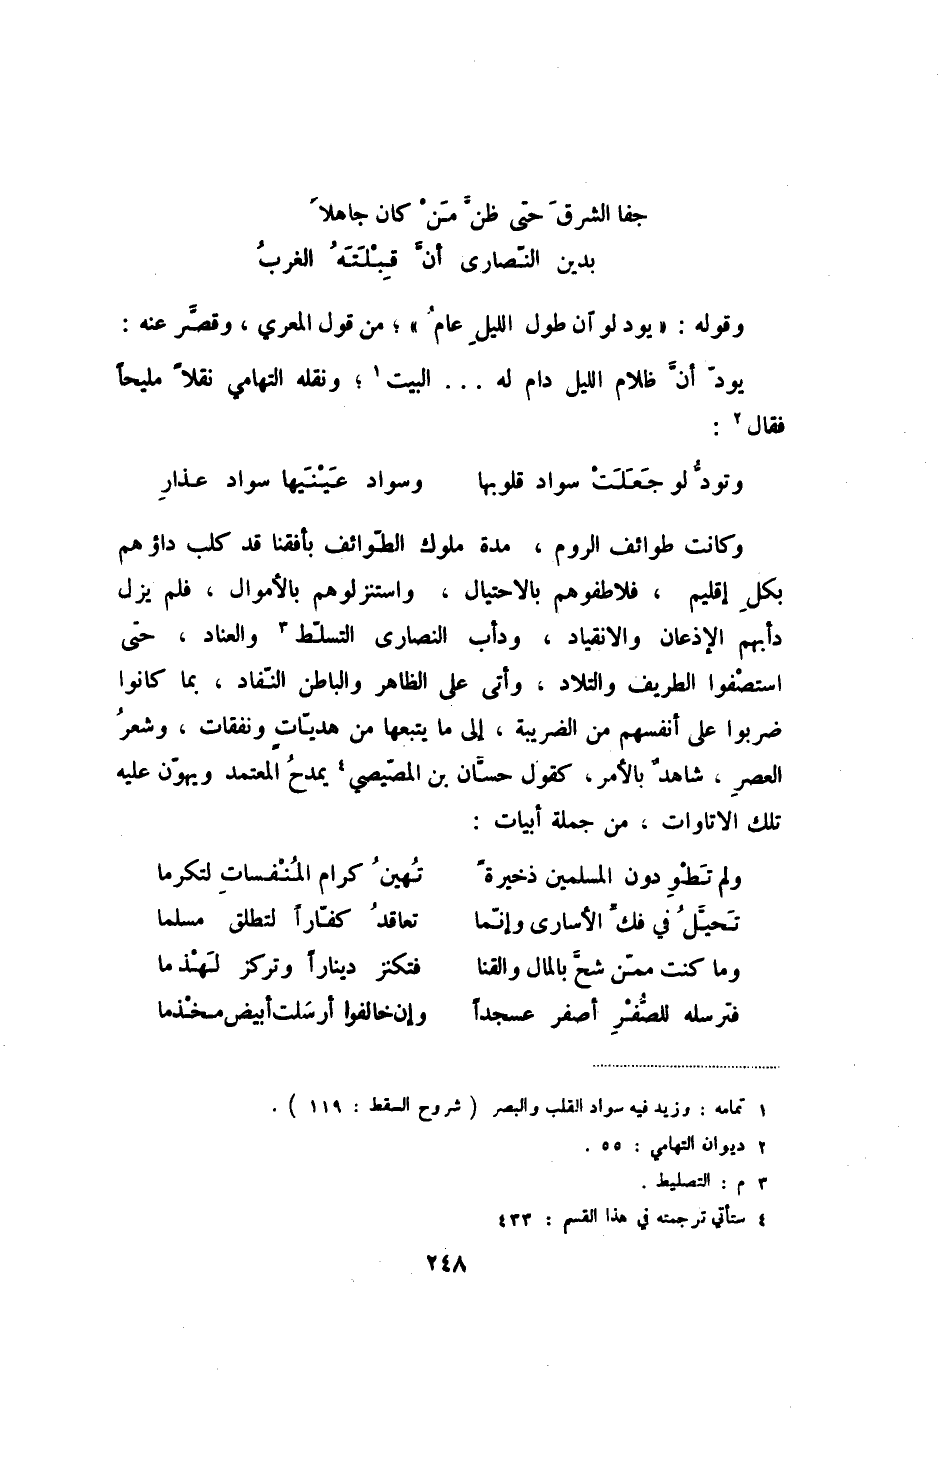 جفا الشرقَ حتّى ظنَّ مَنْ كان جاهلاً
بدين النّصارى أنَّ قِبْلَتَهُ الغربُ
وقوله : « يود لو آن طول الليلِ عامُ » ؛ من قول المعري ، وقصَّر عنه :
يودّ أنَّ ظلام الليل دام له ... البيت ١ ؛ ونقله التهامي نقلاً مليحاً
فقال ٢ :
وتودُّ لو جَعَلَتْ سواد قلوبها وسواد عَيْنَيها سواد عذارِ
وكانت طوائف الروم ، مدة ملوك الطّوائف بأفقنا قد كلب داؤهم
بكلِ إقليم ، فلاطفوهم بالاحتيال ، واستنزلوهم بالأموال ، فلم يزل
دأبهم الإذعان والانقياد ، ودأب النصارى التسلّط ٣ والعناد ، حتّى
استصْفوا الطريف والتلاد ، وأتى على الظاهر والباطن النّفاد ، بما كانوا
ضربوا على أنفسهم من الضريبة ، إلى ما يتبعها من هديّاتٍ ونفقات ، وشعرُ
العصرِ ، شاهدٌ بالأمر ، كقول حسَّان بن المصّيصي ٤ يمدحُ المعتمد ويهوّن عليه
تلك الاتاوات ، من جملة أبيات :
ولم تَطْوِ دون المسلمين ذخيرةً تُهينُ كرام المُنْفساتِ لتكرما
تَحيَّلُ في فكّ الأسارى وإنّما تعاقدُ كفّاراً لتطلق مسلما
وما كنت ممّن شحَّ بالمال والقنا فتكنز ديناراً وتركز لَهْذما
فترسله للصُّفْرِ أصفر عسجداً وإن خالفوا أرسَلت أبيض مخْذما
١ تمامه : وزيد فيه سواد القلب والبصر ( شروح السقط : ١١٩ ) .
٢ ديوان التهامي : ٥٥ .
٣ م : التصليط .
٤ ستأتي ترجمته في هذا القسم : ٤٣٣
٢٤٨